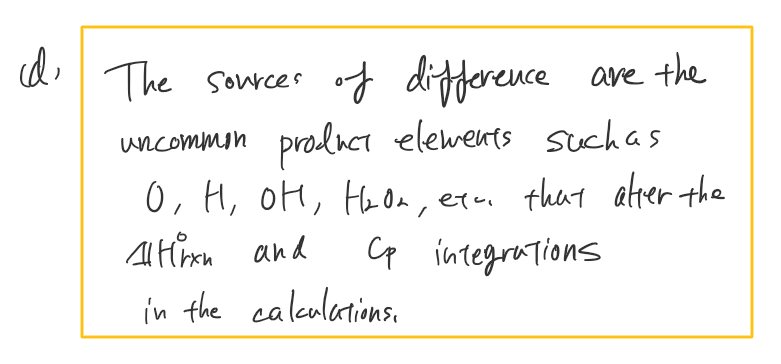 d.
The sources of difference are the
uncommon product elements such as
O, H, OH, H₂O₂, etc. that alter the
ΔH°rxn and Cp integrations
in the calculations.